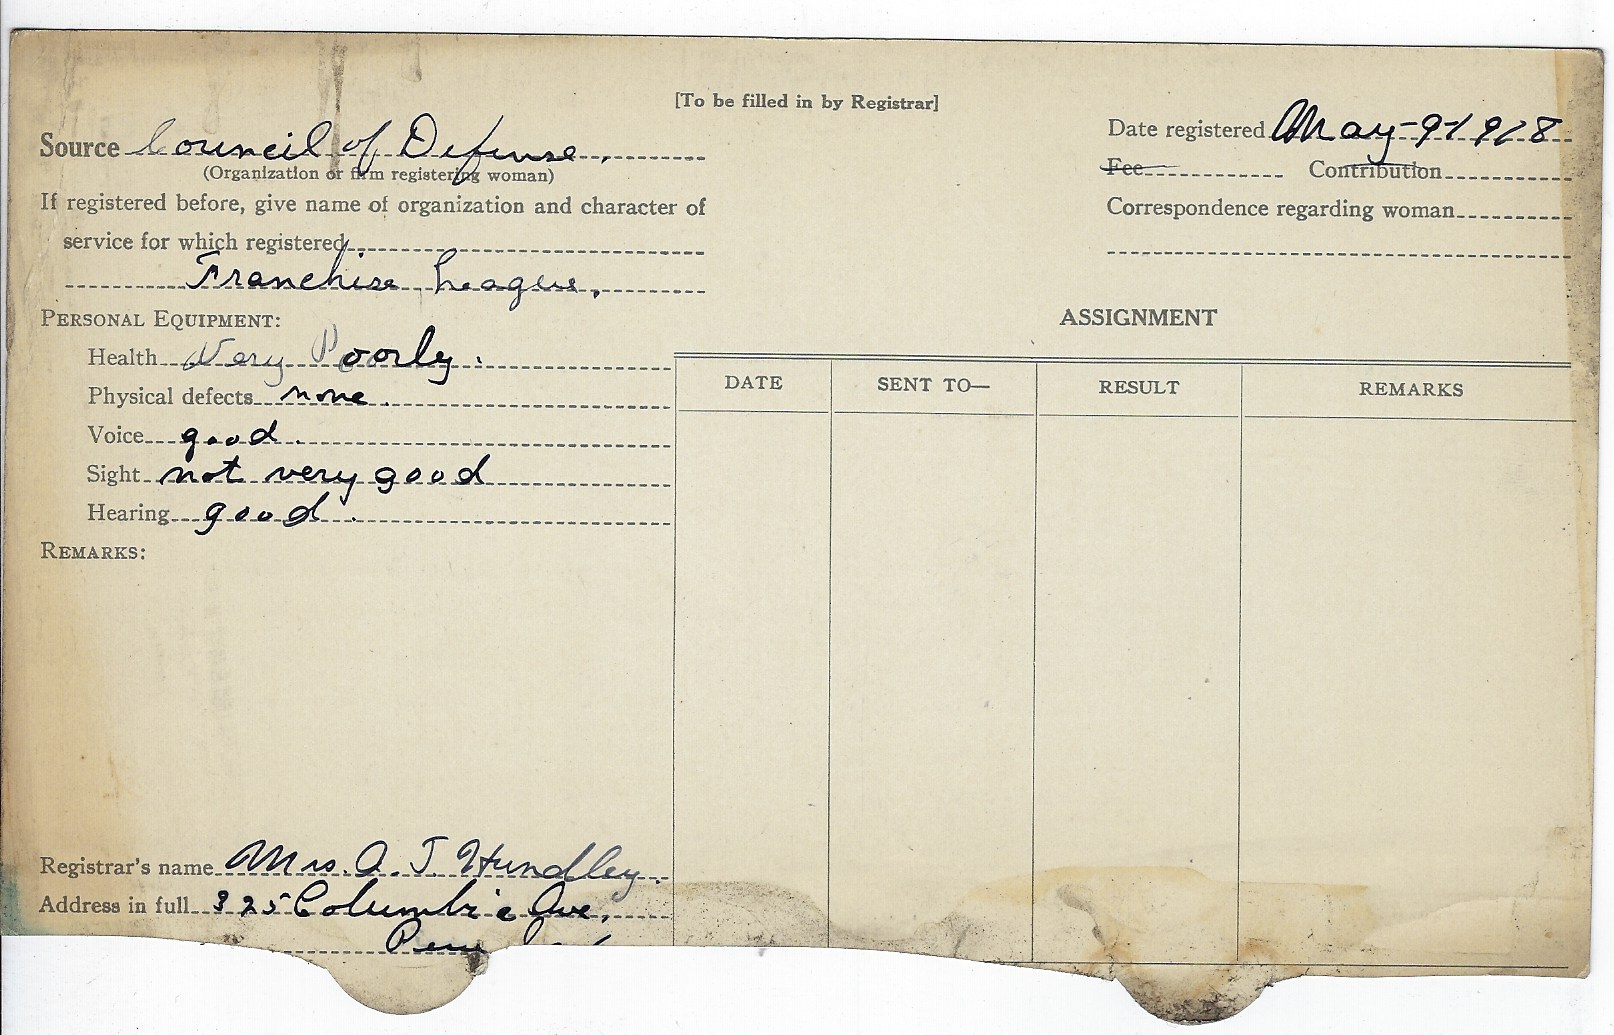 [To be filled in by Registrar]
Source Council of Defense.
(Organization or firm registering woman)
If registered before, give name of organization and character of
service for which registered
Franchise League.
PERSONAL EQUIPMENT:
Health Very Poorly.
Physical defects none.
Voice good.
Sight not very good
Hearing good.
REMARKS:
Registrar's name Mrs. A. J. Hundley.
Address in full 325 Columbia Ave.
Peru
Date registered May-9-1918
Fee Contribution
Correspondence regarding woman
ASSIGNMENT
DATE SENT TO— RESULT REMARKS